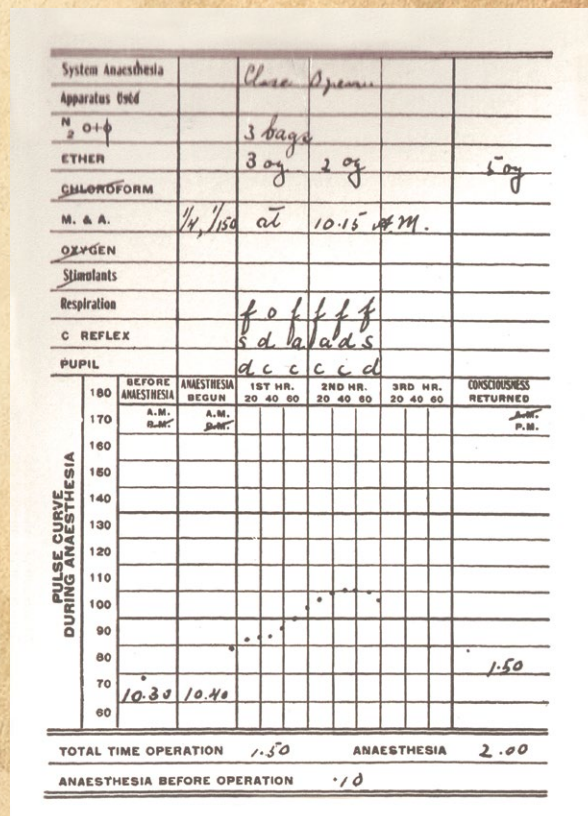 System Anaesthesia Close Open
Apparatus Used
N2 O+O 3 bags
ETHER 3 oz 2 oz 5 oz
CHLOROFORM
M. & A. 1/4, 1/150 at 10.15 A.M.
OXYGEN
Stimulants
Respiration f o f f f f
C REFLEX s d a a d s
PUPIL d c c c c d
PULSE CURVE DURING ANAESTHESIA
180 BEFORE ANAESTHESIA ANAESTHESIA BEGUN 1ST HR. 2ND HR. 3RD HR. CONSCIOUSNESS RETURNED
20 40 60 20 40 60 20 40 60
170 A.M. A.M. A.M.
P.M. P.M. P.M.
160
150
140
130
120
110
100
90
80
70 10.30 10.40 1.50
60
TOTAL TIME OPERATION 1.50 ANAESTHESIA 2.00
ANAESTHESIA BEFORE OPERATION .10